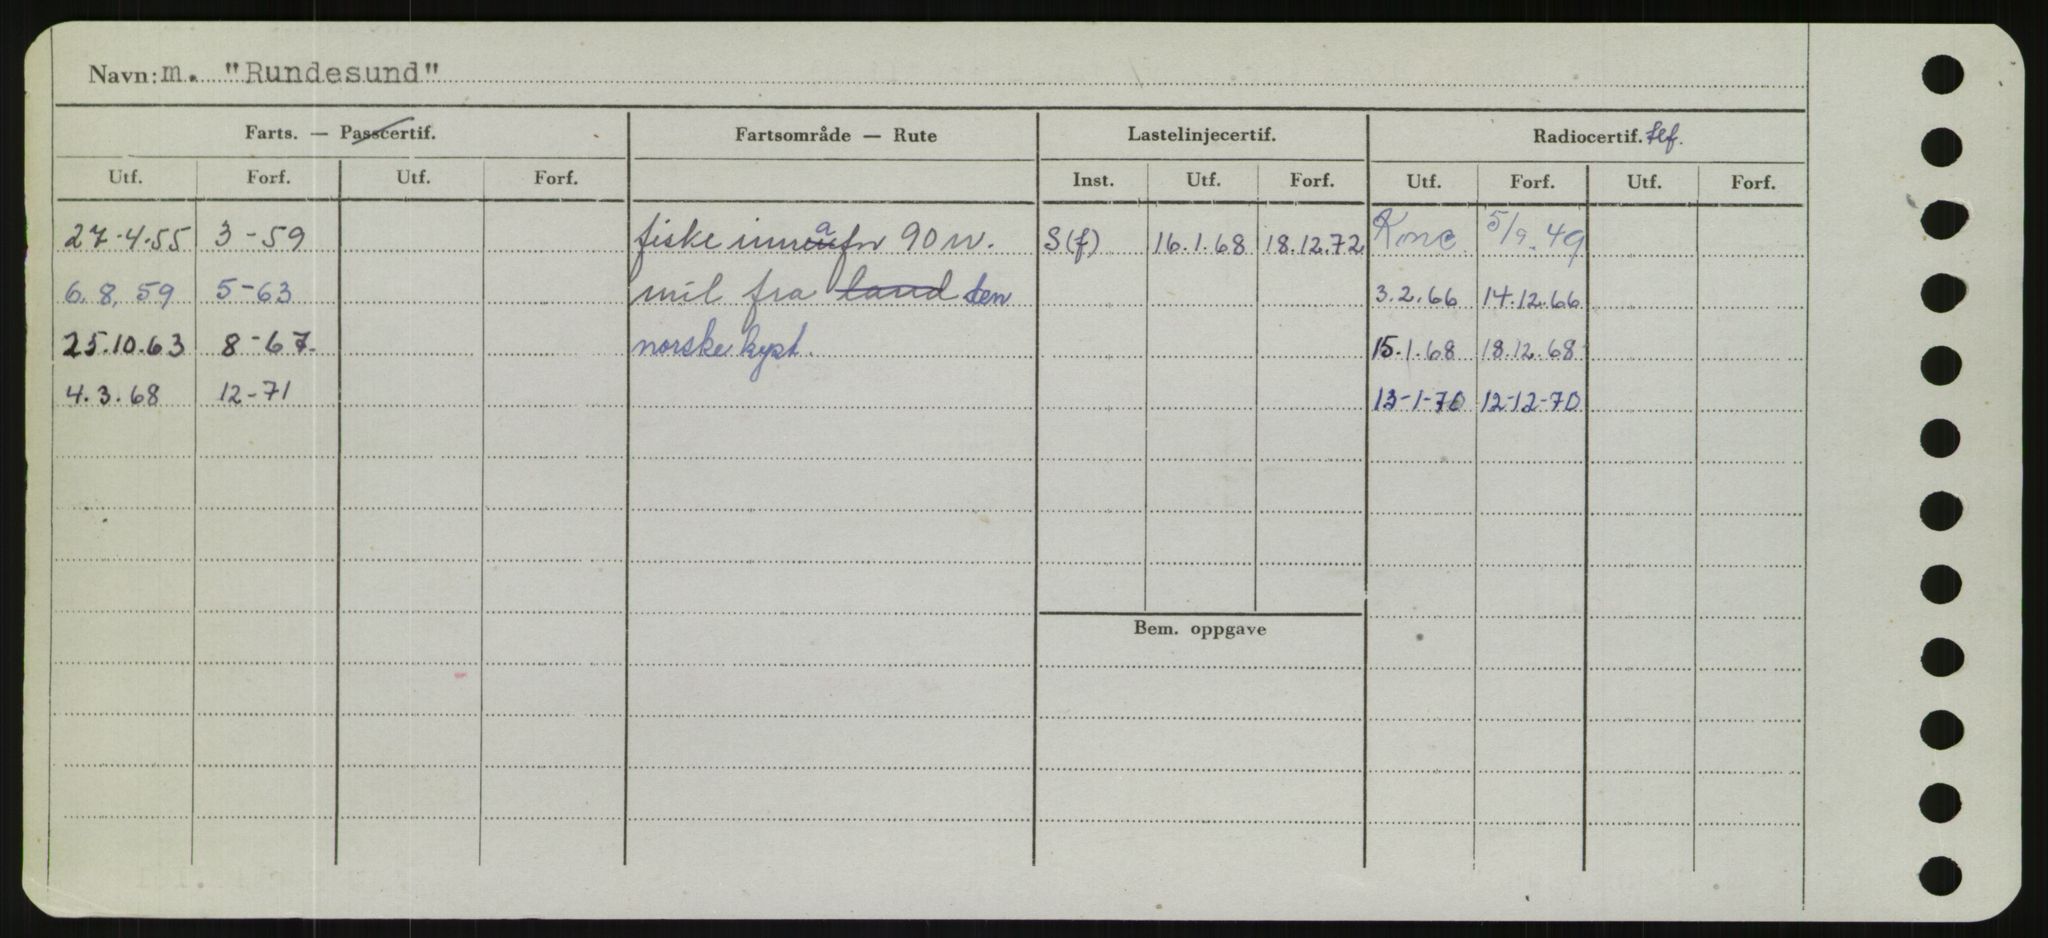 Navn: m. "Rundesund"
Farts. — Passcertif. Fartsområde — Rute Lastelinjecertif. Radiocertif. tlf.
Utf. Forf. Utf. Forf. Inst. Utf. Forf. Utf. Forf. Utf. Forf.
27-4-55 3-59 fiske innafor 90 n. S(f) 16.1.68 18.12.72 Konc. 5/9.49
6.8.59 5-63 mil fra land den 3.2.66 14.12.66
25.10.63 8-67. norske kyst. 15.1.68 18.12.68
4.3.68 12-71 13-1-70 12-12-70
Bem. oppgave